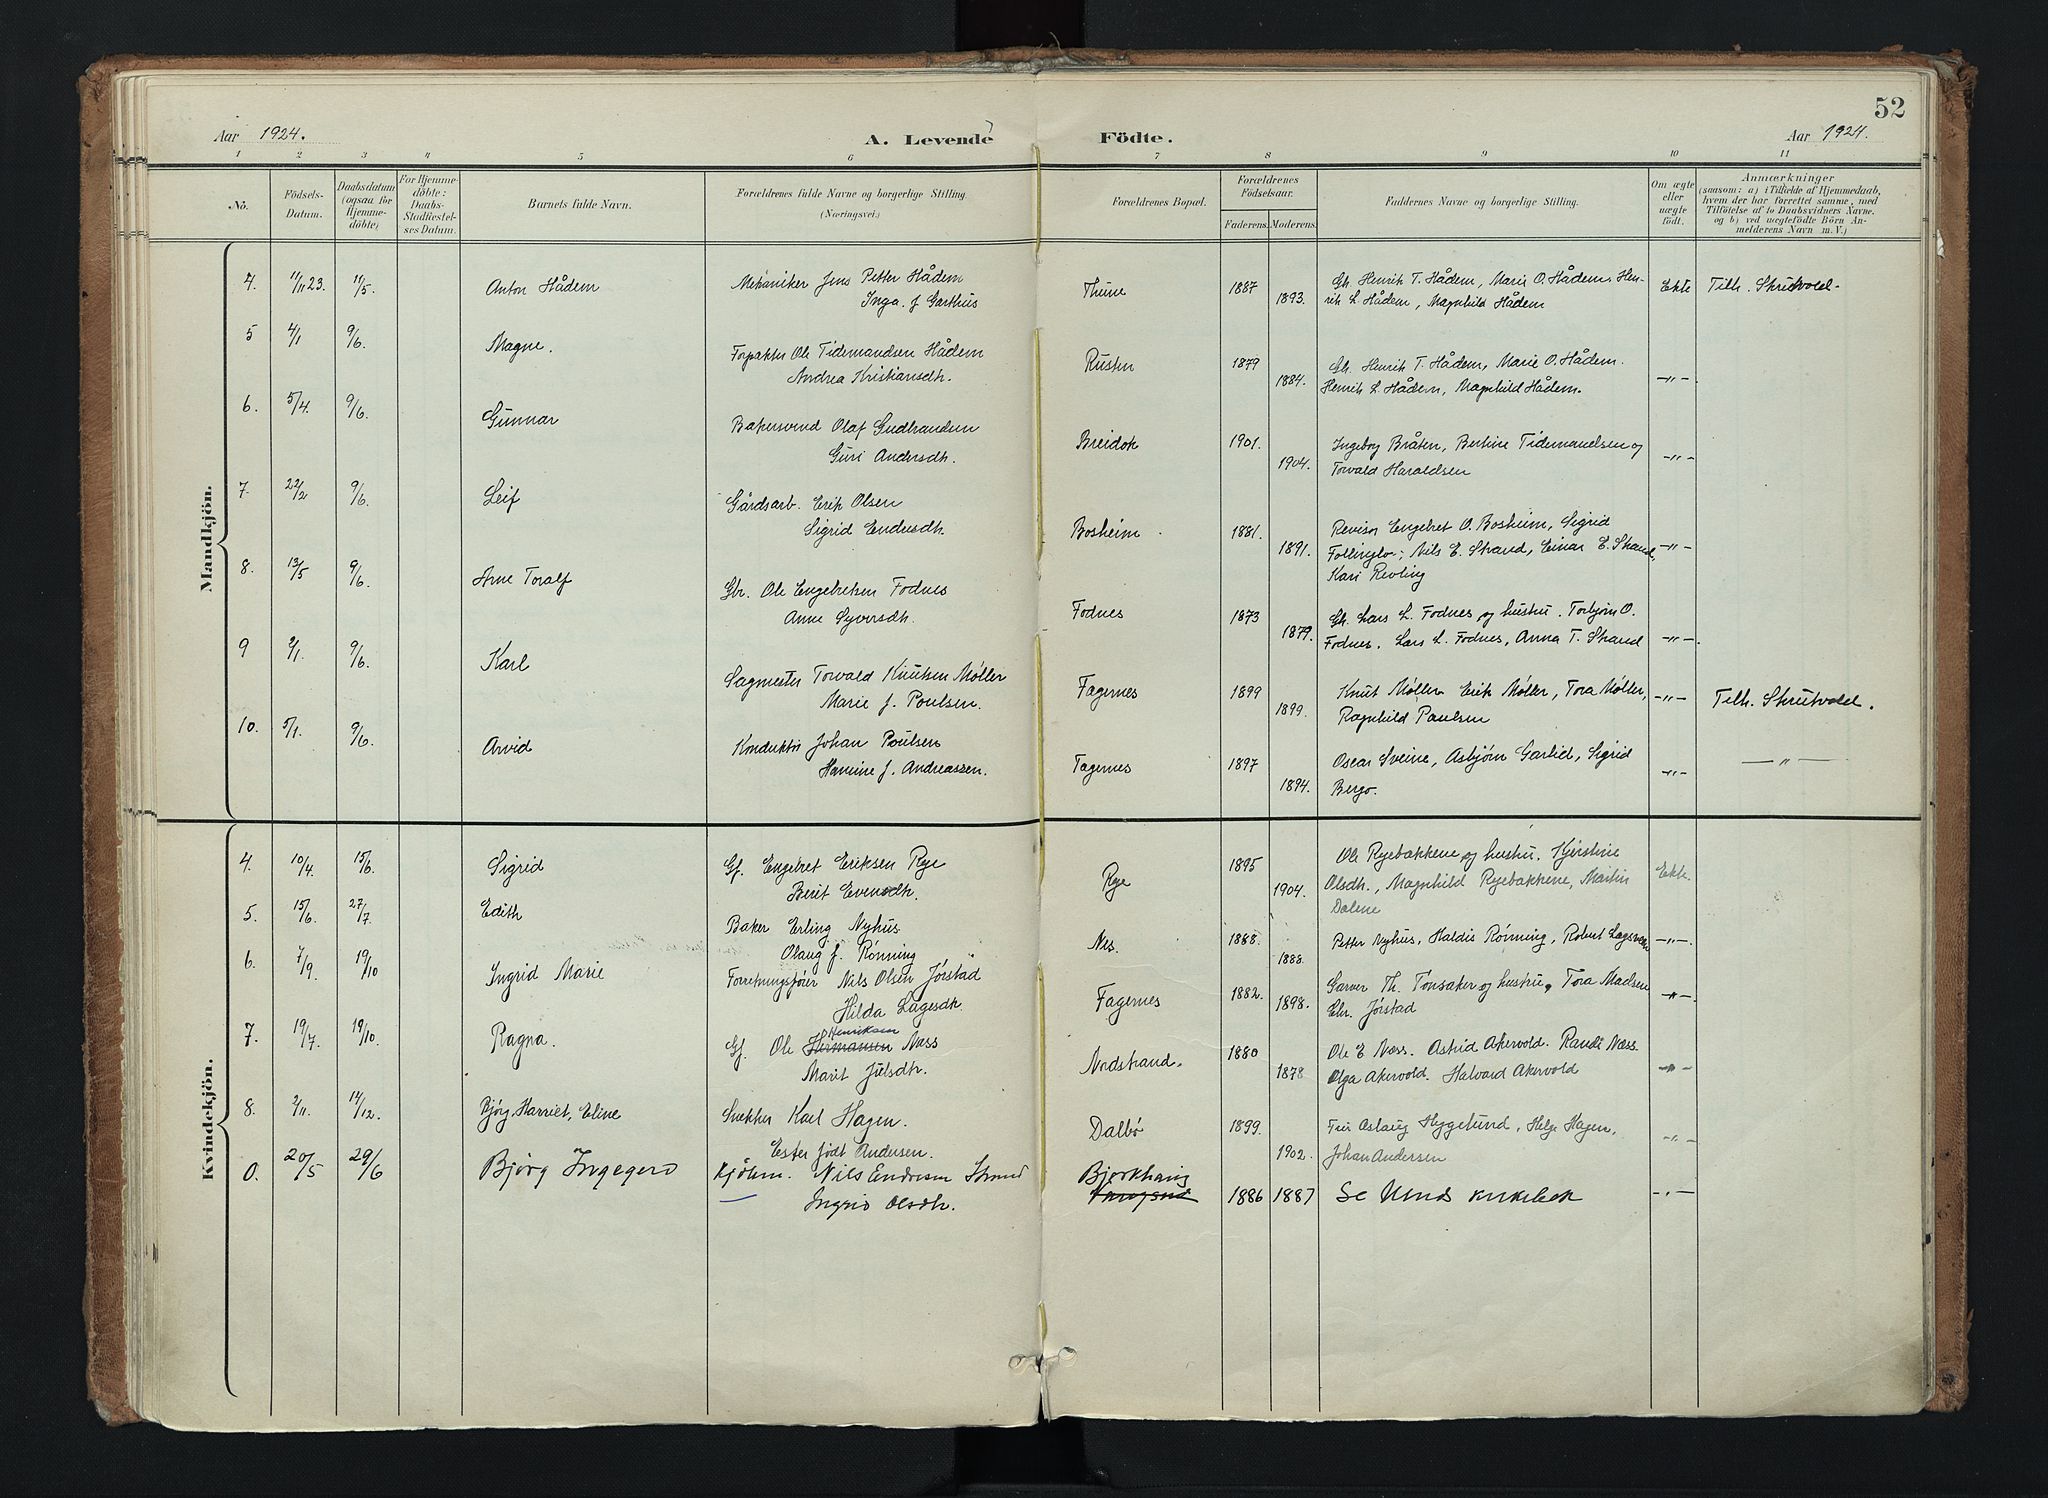 52
Aar 1924.
A. Levende Födte.
Aar 1924.
1 2 3 4 5 6 7 8 9 10 11
No.
Födsels-Datum.
Daabsdatum (ogsaa for Hjemmedöbte)
For Hjemmedöbte: Daabs-Stadfæstelses Datum.
Barnets fulde Navn.
Forældrenes fulde Navne og borgerlige Stilling. (Næringsvei.)
Forældrenes Bopæl.
Forældrenes Födselsaar.
Faderens. Moderens.
Faddernes Navne og borgerlige Stilling.
Om ægte eller uægte födt.
Anmærkninger
(saasom: a) i Tilfælde af Hjemmedaab, hvem der har forrettet samme, med Tilföielse af to Daabsvidners Navne, og b) ved uægtefödte Börn Anmelderens Navn m. V.)
Mandkjön.
4. 11/11 23. 11/5. Anton Hådem Mekaniker Jens Petter Hådem Thune 1887 Gb. Henrik T. Hådem, Marie O. Hådem, Hen- Ekte Tilh. Skrutvold
Inga J. Garthus 1893. rik L Hådem, Magnhild Hådem
5 4/1 9/6. Magne. Forpakter Ole Tidemandsen Hådem Rusten 1879 Gb. Henrik T. Hådem, Marie O. Hådem.
Andrea Kristiansdh. 1884. Henrik L Hådem, Magnhild Hådem. -"-
6. 5/4. 9/6. Gunnar Bakersvend Olaf Gudbrandsen Breidok 1901. Ingeborg Bråten, Bertine Tidemandsen og
Guri Andersdh. 1904. Torvald Haraldsen -"-
7. 22/2 9/6. Leif Gårdsarb. Erik Olsen Bosheim 1881. Revisor Engebret O. Bosheim, Sigrid
Sigrid Endresdh. 1891. Follinglo; Nils E. Strand, Einar E. Strand, -"-
Kari Revling
8. 13/5 9/6. Arne Toralf Gbr. Ole Engebretsen Fodnes Fodnes 1873 Gb. Lars L. Fodnes og hustru. Torbjørn O.
Anne Syversdh. 1879. Fodnes. Lars L. Fodnes, Anna T. Strand -"-
9 2/1. 9/6. Karl Sagmester Torvald Knutsen Møller Fagernes 1899 Knut Møller Erik Møller, Tora Møller, -"- Tilh. Skrutvold.
Marie J. Poulsen. 1899. Ragnhild Paulsen
10. 5/1. 9/6. Arvid Konduktør Johan Poulsen Fagernes 1897 Oscar Sveine, Asbjørn Garlid, Sigrid -"-
Hanine J. Andreassen. 1894. Bergo. -"-
Kvindekjön.
4. 10/4. 15/6. Sigrid Gf. Engebret Eriksen Rye Rye 1895 Ole Ryebakkene og hustru. Kjerstine
Berit Evensdh. 1904. Olsdh., Magnhild Ryebakkene, Martin Ekte.
Dalene
5. 15/6. 27/7. Edith Baker Erling Nyhus Nes. 1888. Petter Nyhus, Haldis Rønning, Robert -"-.
Olaug J. Rønning 1888.
6. 7/9. 19/10 Ingrid Marie Forretningsfører Nils Olsen Jørstad Fagernes 1882. Garver Th. Tonsaker og hustru, Tora Madsen -"-.
Hilda Lagesdh. 1898. Chr. Jørstad
7. 19/7. 19/10. Ragna. Gf. Ole Hermansen Henriksen Næss Nordstrand. 1880 Ole E Næss. Astrid Akervold. Randi Næss.
Marit Julsdh. 1878 Olga Akervold. Halvard Akervold -"-
8. 2/11. 14/12. Bjørg, Harriet, Eline Snekker Karl Hagen. Dalbø 1899. Fru Aslaug Hyggelund, Helge Hagen,
Ester født Andersen. 1902. Johan Andersen -"-
0. 20/5 29/6 Bjørg Ingegerd Kjøbm. Nils Endresen Strand Bjerkhaug 1886 1887 Se Ulnes kirkebok -"-
Ingrid Olsdh.